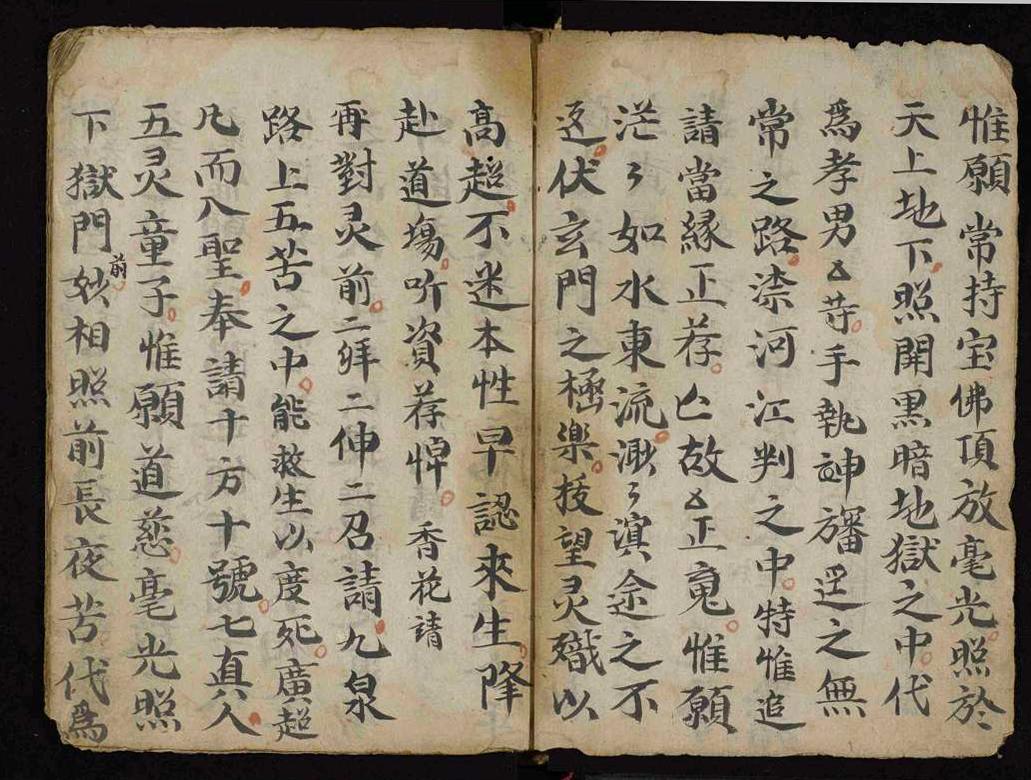 惟願常持宝佛頂放毫光照於
天上地下照開黒暗地獄之中代
為孝男厶苛手執神旛𨑒之無
常之路㮈河江判之中特惟追
請當縁正荐亡故厶正䰟惟願
茫々如水東流渺々滇途之不
返伏玄門之極楽接望灵軄以
高超不迷本性早認來生降
赴道塲听資荐悼香花請
再對灵前二拜二伸二召請九泉
路上五苦之中能救生以度死廣超
凡而入聖奉請十方十號七真人
五灵童子惟願道慈毫光照
下獄門前妙相照前長夜苦代為